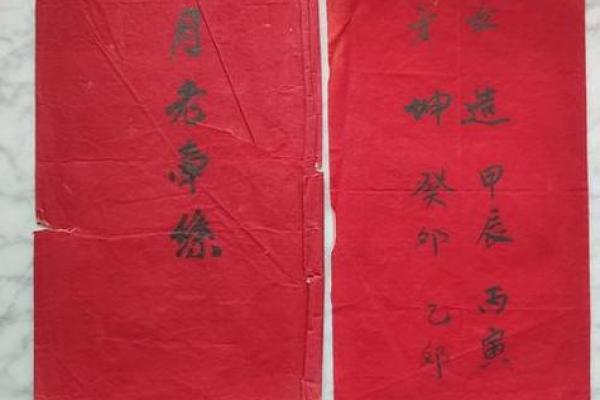 造甲辰丙寅
坤癸卯乙卯
月老牵絲